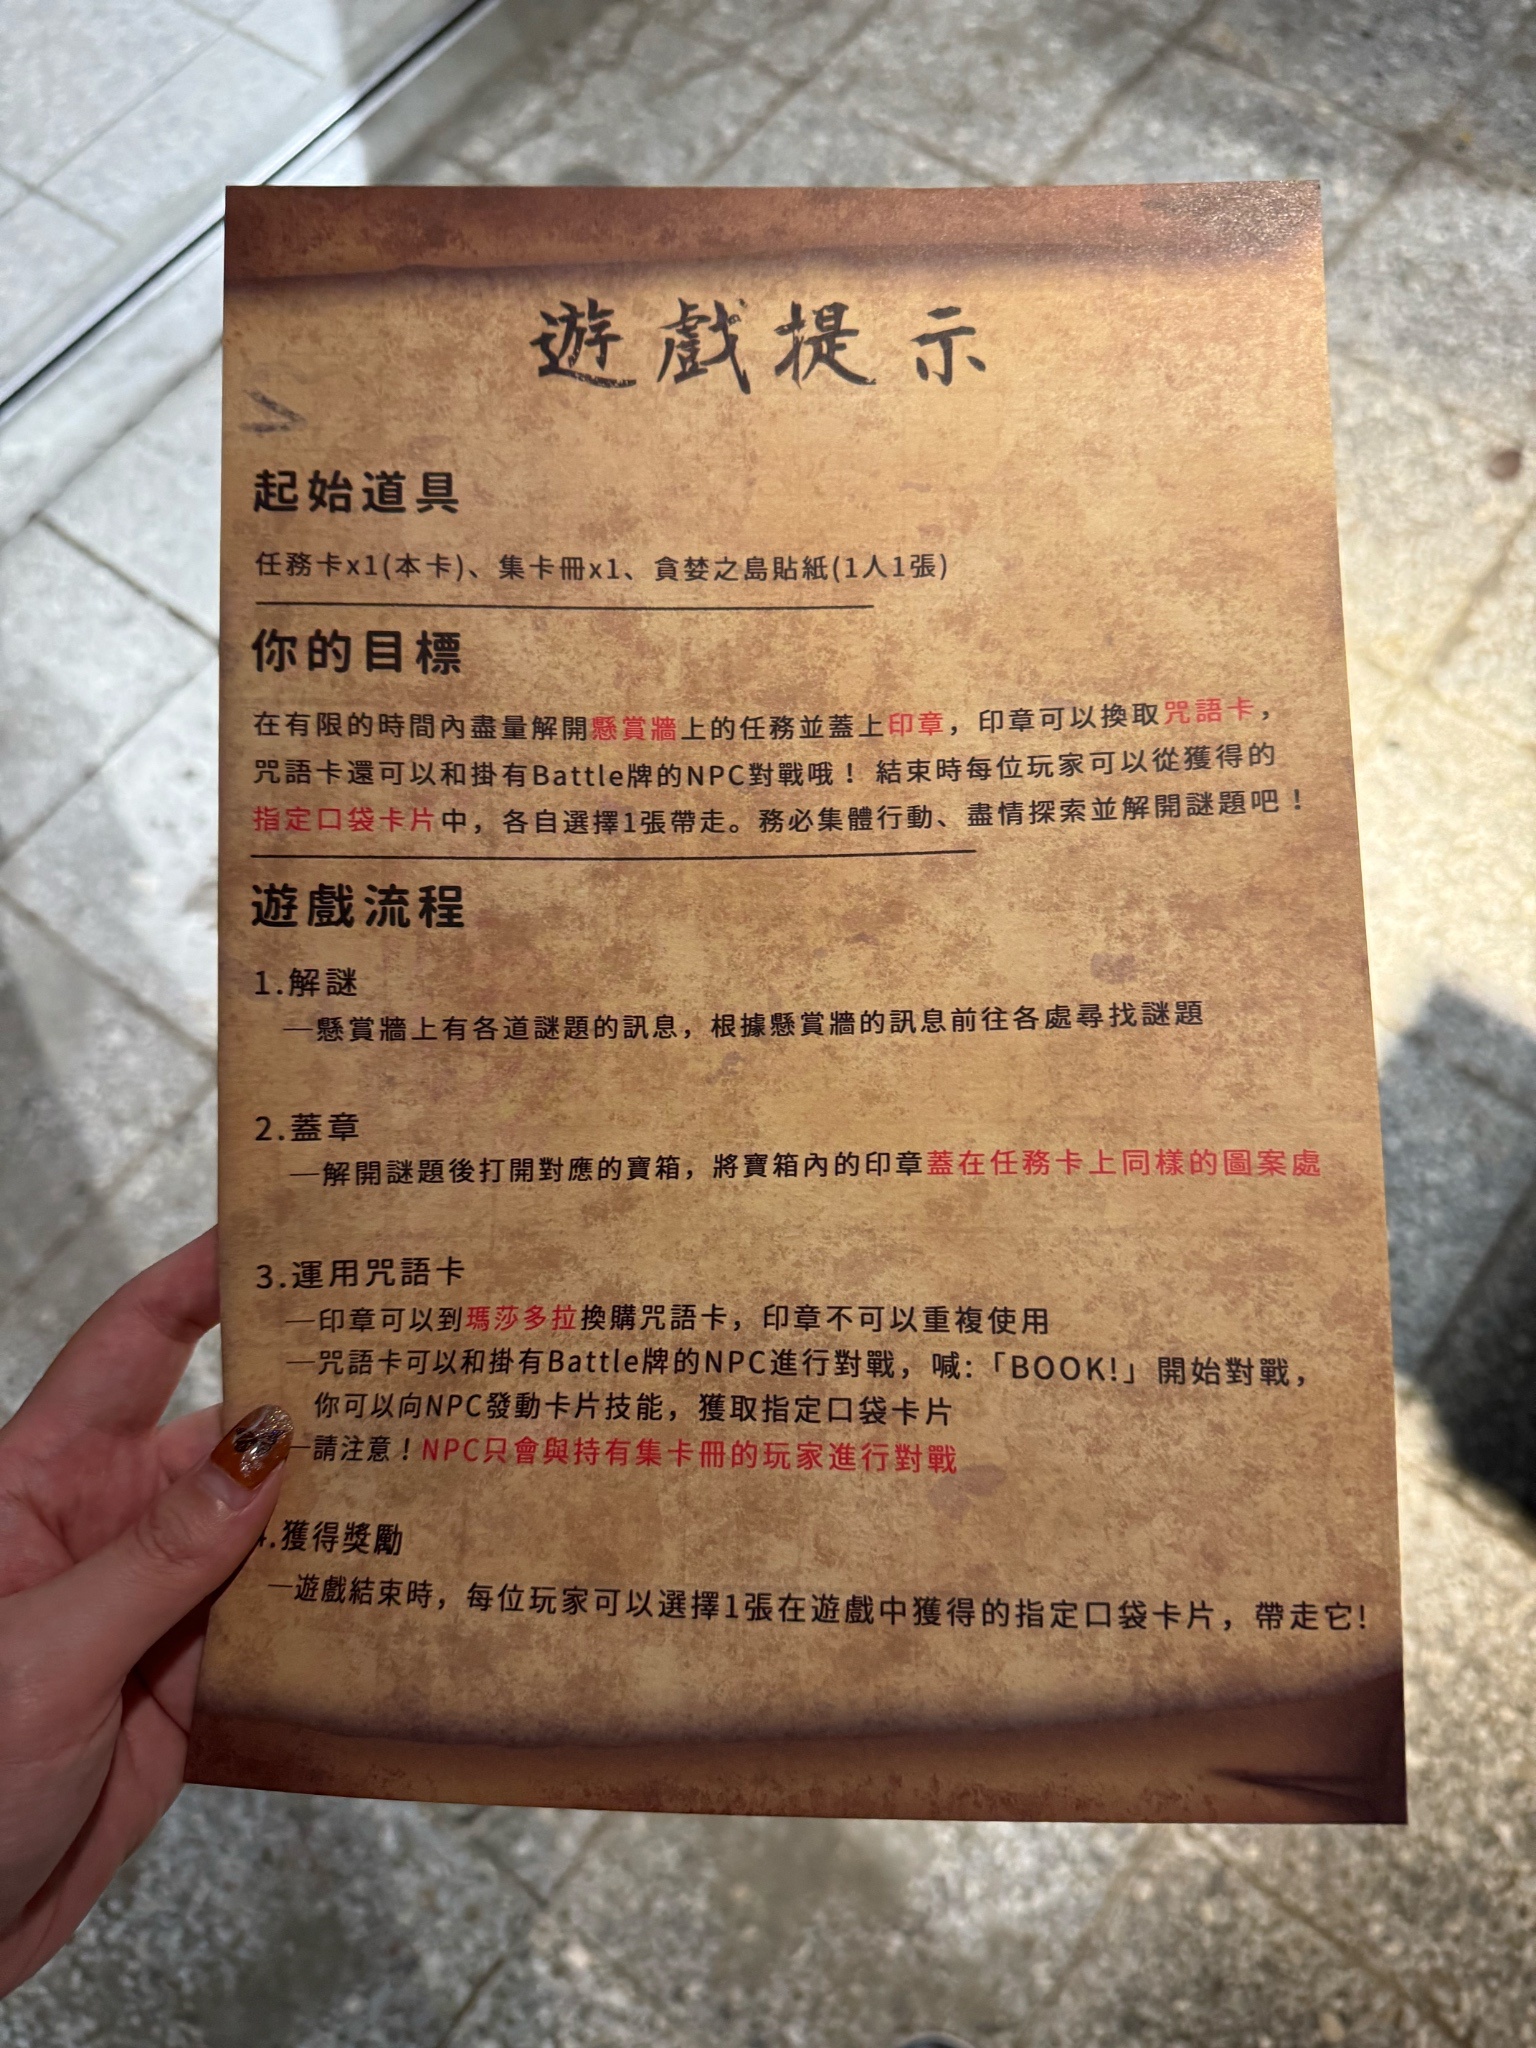 遊戲提示
起始道具
任務卡x1(本卡)、集卡冊x1、貪婪之島貼紙(1人1張)
你的目標
在有限的時間內盡量解開懸賞牆上的任務並蓋上印章，印章可以換取咒語卡，
咒語卡還可以和掛有Battle牌的NPC對戰哦！ 結束時每位玩家可以從獲得的
指定口袋卡片中，各自選擇1張帶走。務必集體行動、盡情探索並解開謎題吧！
遊戲流程
1.解謎
—懸賞牆上有各道謎題的訊息，根據懸賞牆的訊息前往各處尋找謎題
2.蓋章
—解開謎題後打開對應的寶箱，將寶箱內的印章蓋在任務卡上同樣的圖案處
3.運用咒語卡
—印章可以到瑪莎多拉換購咒語卡，印章不可以重複使用
—咒語卡可以和掛有Battle牌的NPC進行對戰，喊:「BOOK!」開始對戰，
你可以向NPC發動卡片技能，獲取指定口袋卡片
—請注意！NPC只會與持有集卡冊的玩家進行對戰
4.獲得獎勵
—遊戲結束時，每位玩家可以選擇1張在遊戲中獲得的指定口袋卡片，帶走它!